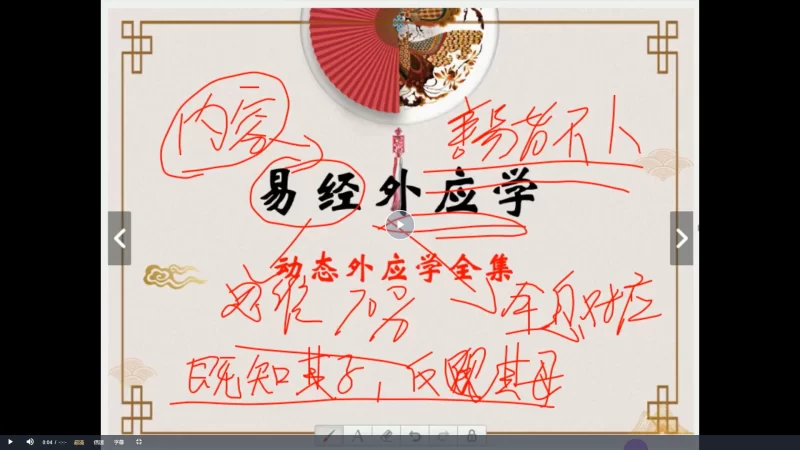 内容
善易者不卜
易经外应学
动态外应学全集
不易
全息对应
既知其子，反观其母
0:04 / --:--
超清
倍速
字幕